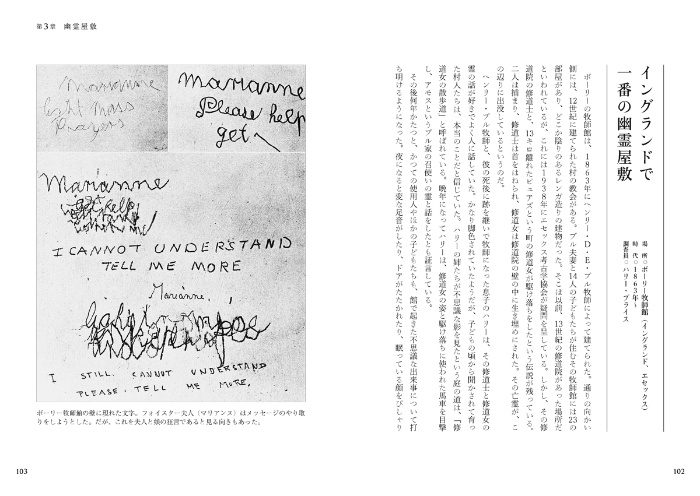 イングランドで
一番の幽霊屋敷
場 所○ボーリー牧師館(イングランド、エセックス)
時 代○1863年〜
調査員○ハリー・プライス
ボーリーの牧師館は、1863年にヘンリー・D・E・ブル牧師によって建てられた。通りの向かい
側には、12世紀に建てられた村の教会がある。ブル夫妻と14人の子どもたちが住むその牧師館には23の
部屋があり、どこか陰りのあるレンガ造りの建物だった。そこは以前、13世紀の修道院があった場所だ
といわれているが、これには1938年にエセックス考古学協会が疑問を呈している。しかし、その修
道院の修道士と、13キロ離れたビュアズという町の修道女が駆け落ちをしたという伝説が残っている。
二人は捕まり、修道士は首をはねられ、修道女は修道院の壁の中に生き埋めにされた。その亡霊が、こ
の辺りに出没しているというのだ。
ヘンリー・ブル牧師と、彼の死後に跡を継いで牧師になった息子のハリーは、その修道士と修道女の
霊の話が好きでよく人に話していた。かなり脚色されていたようだが、子どもの頃から聞かされて育っ
た村人たちは、本当のことだと信じていた。ハリーの姉たちが不思議な影を見たという庭の道は、「修
道女の散歩道」と呼ばれている。晩年になってハリーは、修道女の姿と駆け落ちに使われた馬車を目撃
し、アモスというブル家の召使いの霊と話をしたとも証言している。
その後何年かたつと、かつての使用人やほかの子どもたちも、館で起きた不思議な出来事について打
ち明けるようになった。夜になると変な足音がしたり、ドアがたたかれたり、眠っている顔をぴしゃり
102
第3章 幽霊屋敷
Marianne
light mass
prayers
Marianne
Please help
get
Marianne
get help
I CANNOT UNDERSTAND
TELL ME MORE
Marianne,
I STILL CANNOT UNDERSTAND
PLEASE TELL ME MORE,
ボーリー牧師館の壁に現れた文字。フォイスター夫人(マリアンヌ)はメッセージのやり取
りをしようとした。だが、これを夫人と娘の狂言であると見る向きもあった。
103